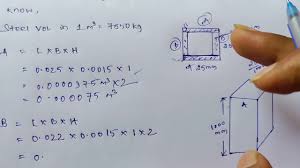 know,
Steel vol in 1 m³ = 7850 kg
A = L × B × H
= 0.025 × 0.0015 × 1
= 0.0000375 m³ × 2
= 0.000075 m³
B = L × B × H
= 0.022 × 0.0015 × 1 × 2
= 0.
A
B
25mm
A
1000
mm